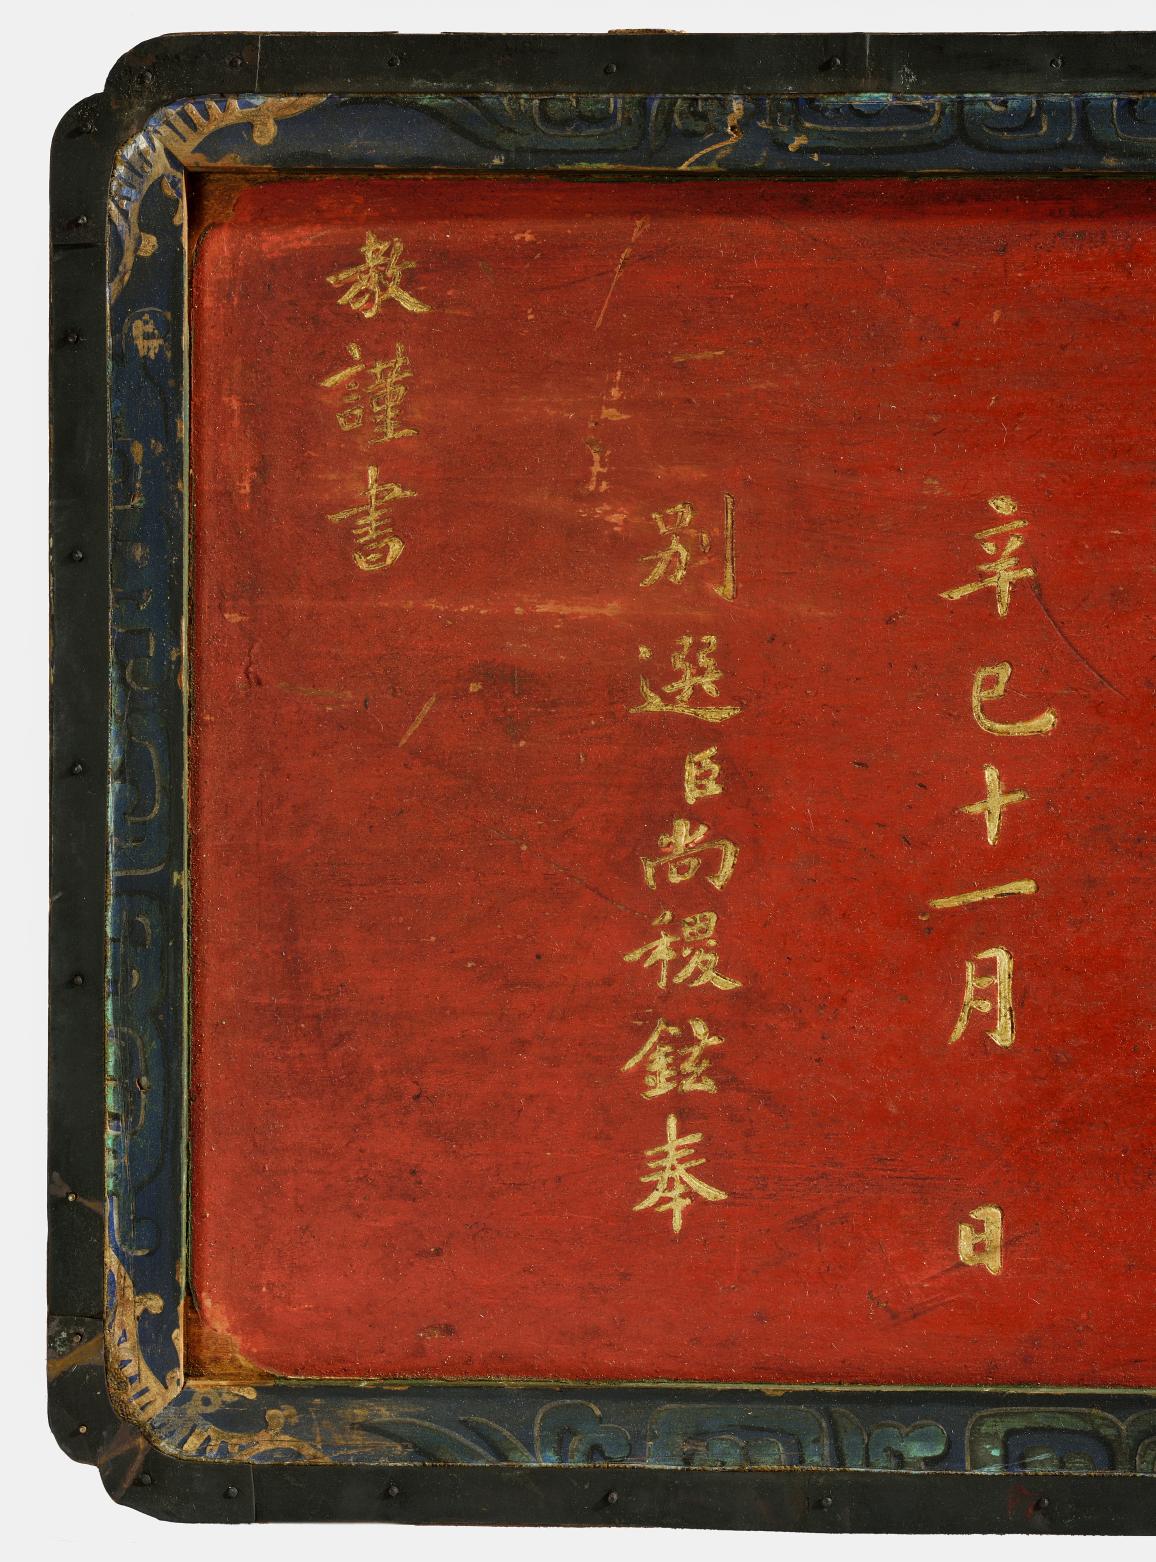 辛巳十一月 日
別選臣尚稷鉉奉
教謹書